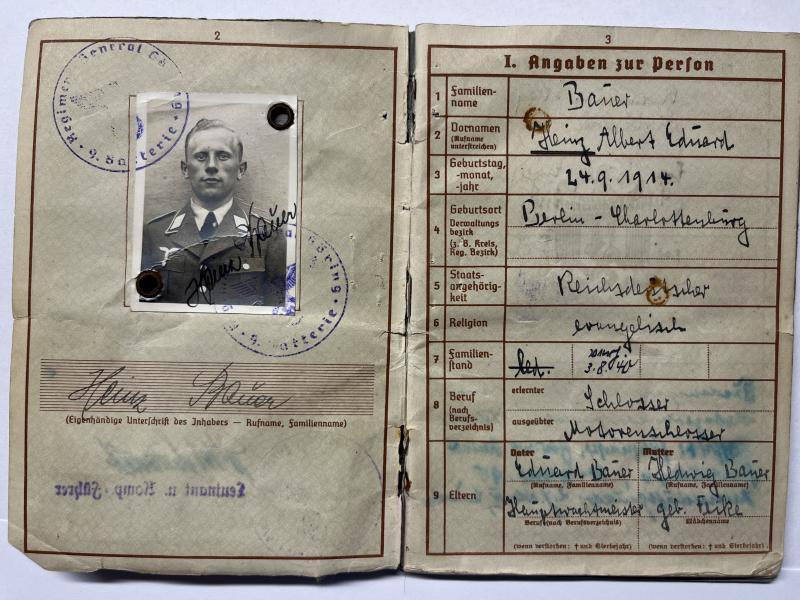 2
Regiment General Göring
9. Batterie
Heinz Bauer
Göring
9. Batterie
Heinz Bauer
(Eigenhändige Unterschrift des Inhabers — Rufname, Familienname)
Leutnant u. Komp.-Führer
3
I. Angaben zur Person
1 Familien-
name
Bauer
2 Vornamen
(Rufname
unterstreichen)
Heinz Albert Eduard
3 Geburtstag,
-monat,
-jahr
24.9.1914.
4 Geburtsort
Verwaltungs-
bezirk
(z. B. Kreis,
Reg. Bezirk)
Berlin - Charlottenburg
5 Staats-
angehörig-
keit
Reichsdeutscher
6 Religion
evangelisch
7 Familien-
stand
led.
3.8.40
8 Beruf
(nach
Berufs-
verzeichnis)
erlernter
Schlosser
ausgeübter
Motorenschlosser
9 Eltern
Vater
Eduard Bauer
(Rufname, Familienname)
Hauptwachtmeister
Beruf (nach Berufsverzeichnis)
(wenn verstorben: † und Sterbejahr)
Mutter
Hedwig Bauer
(Rufname, Familienname)
geb.
Mädchenname
(wenn verstorben: † und Sterbejahr)